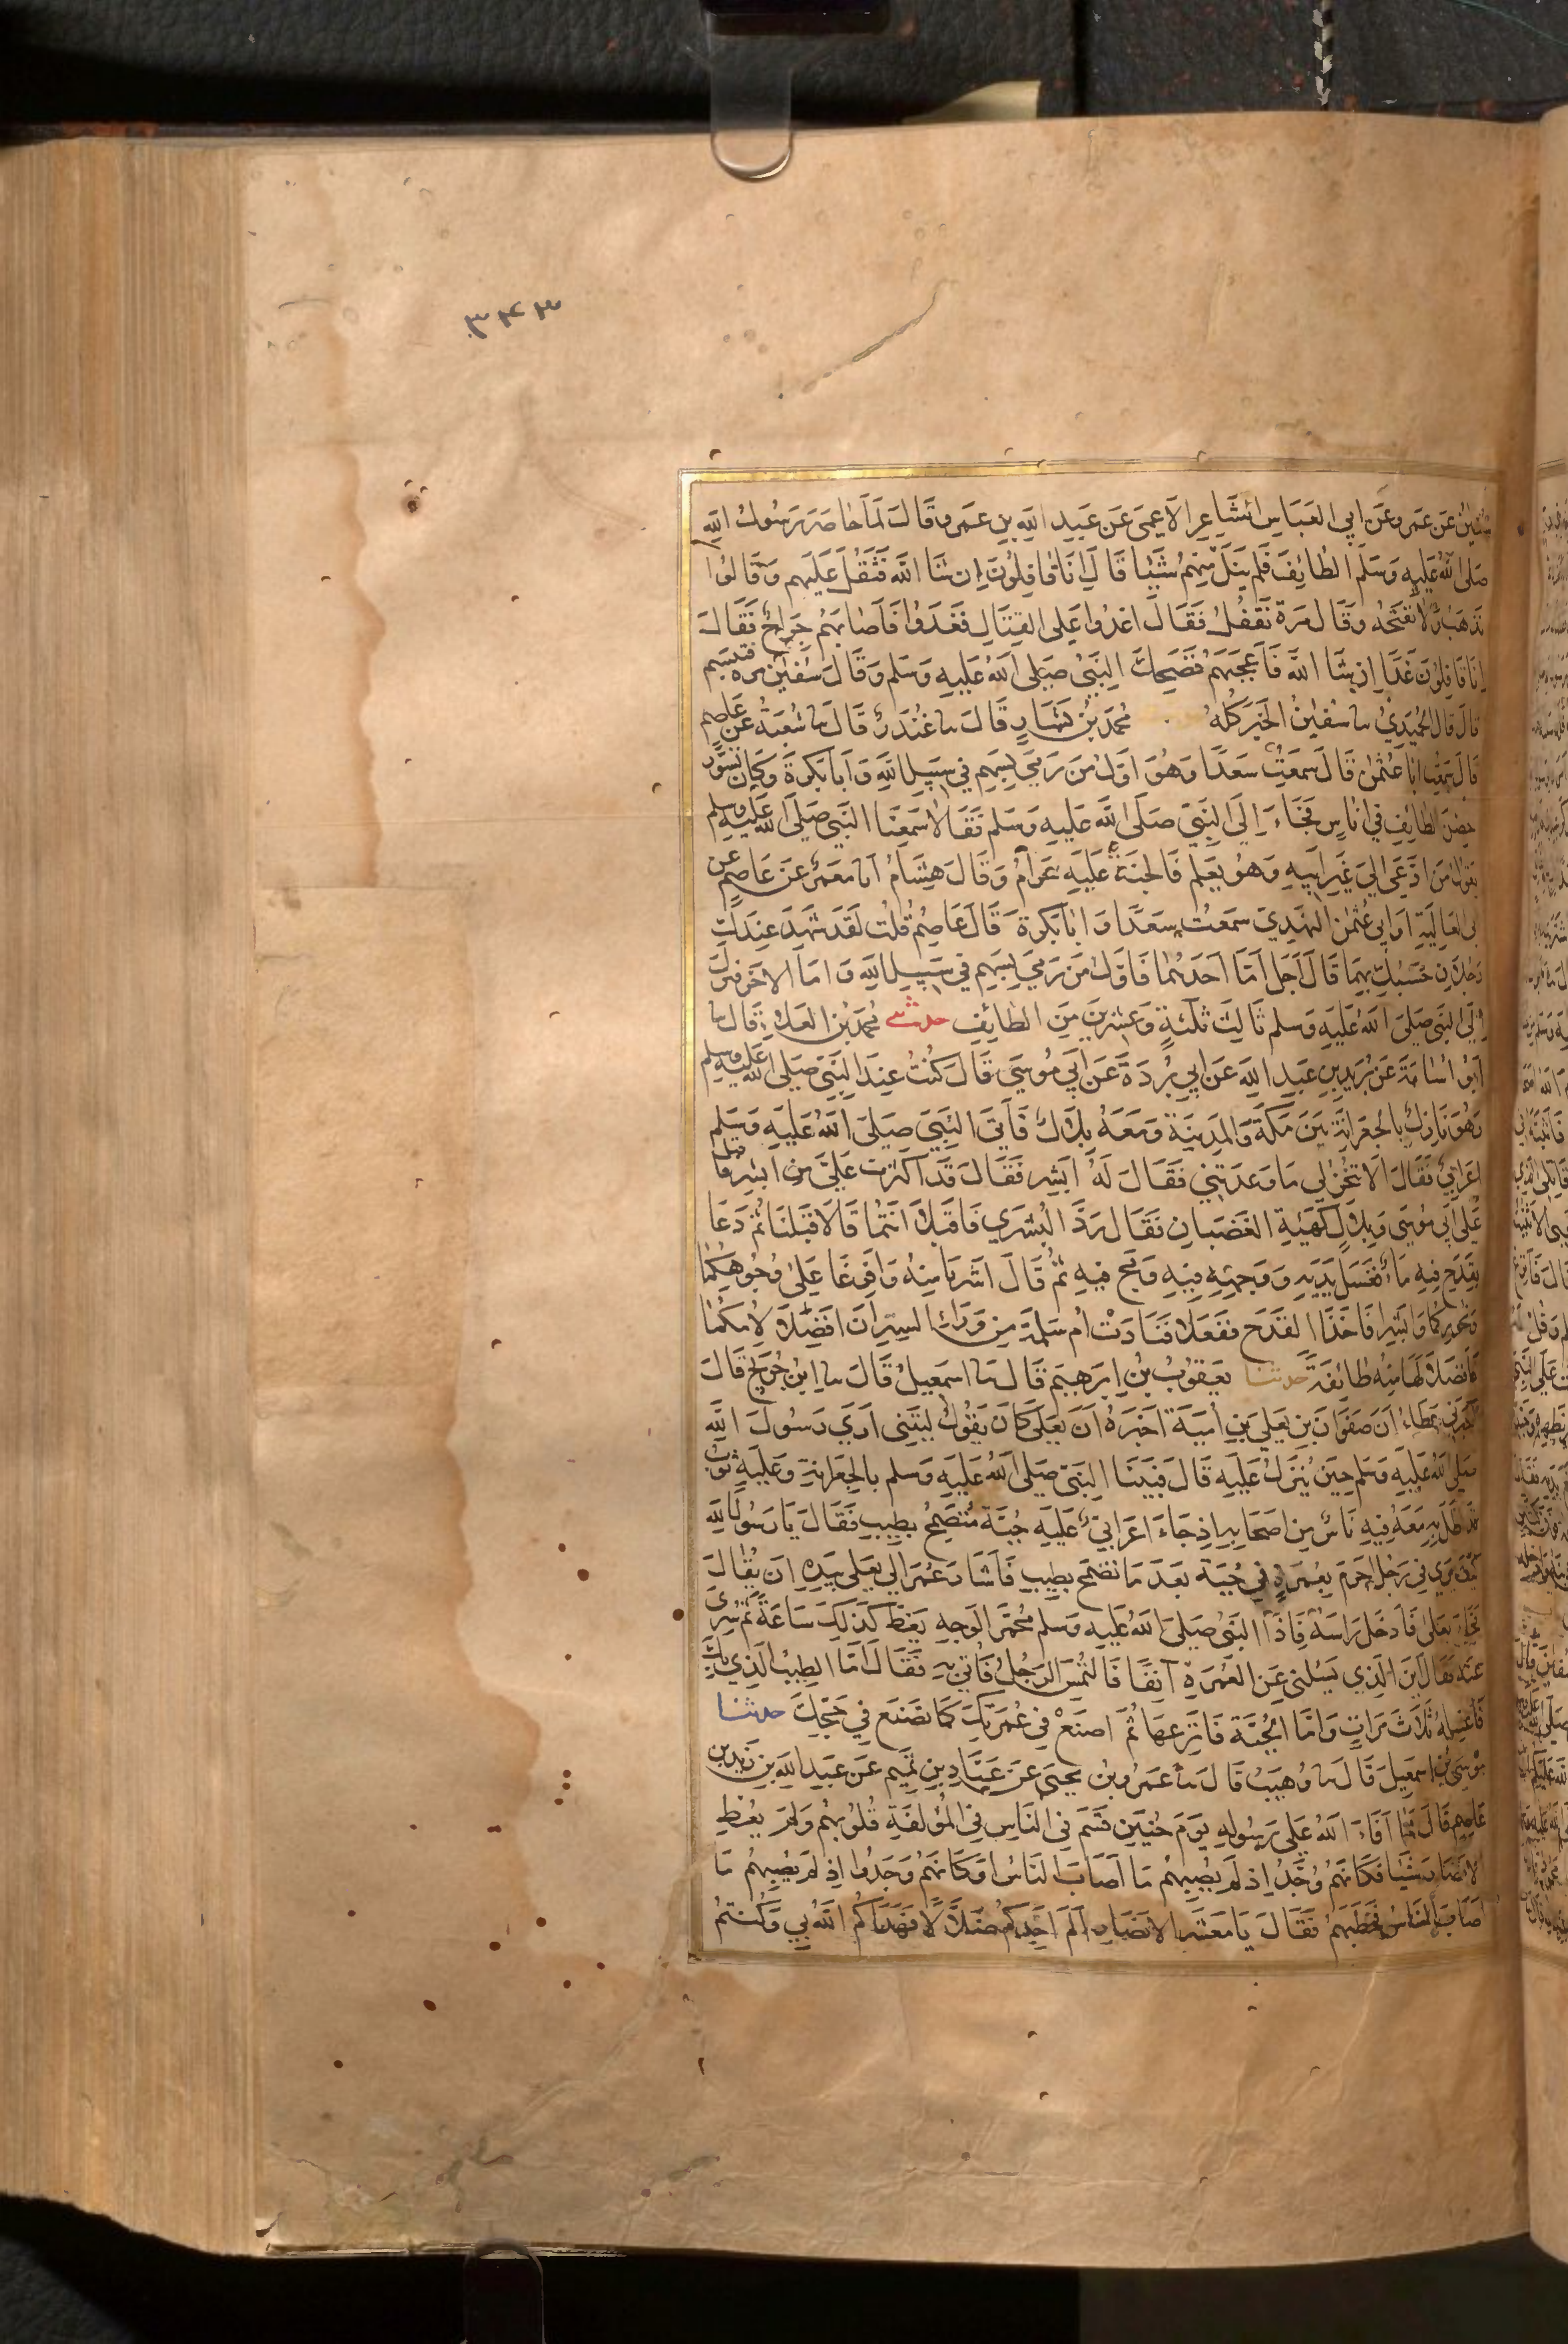 ٣٤٣
سفين عن عمرو عن ابي العباس الشاعر الاعمى عن عبد الله بن عمرو قال لما حاصر رسول الله
صلى الله عليه وسلم الطائف فلم ينل منهم شيئا قال انا قافلون ان شا الله فثقل عليهم وقالوا
نذهب ولا نفتحه وقال مرة نقفل فقال اغدوا على القتال فغدوا فاصابهم جراح فقال
انا قافلون غدا ان شا الله فاعجبهم فضحك النبي صلى الله عليه وسلم وقال سفين مرة فتبسم
قال قال الحميدي سا سفين الخبر كله محمد بن بشار قال سا غندر قال سا شعبة عن عاصم
قال سمعت ابا عثمن قال سمعت سعدا وهو اول من رمي بسهم في سبيل الله وابا بكرة وكان تسور
حصن الطايف في اناس فجاء الى النبي صلى الله عليه وسلم فقالا سمعنا النبي صلى الله عليه وسلم
يقول من ادعى الي غير ابيه وهو يعلم فالجنة عليه حرام وقال هشام انا معمر عن عاصم عن
ابي العالية او ابي عثمن النهدي سمعت سعدا وابا بكرة قال عاصم قلت لقد شهد عندك
رجلان حسبك بهما قال اجل اما احدهما فاول من رمي بسهم في سبيل الله واما الاخر فنزل
الى النبي صلى الله عليه وسلم ثالث ثلثة وعشرين من الطايف حدثني محمد بن العلا قال سا
ابو اسامة عن بريد بن عبد الله عن ابي بردة عن ابي موسي قال كنت عند النبي صلى الله عليه وسلم
وهو نازل بالجعرانة بين مكة والمدينة ومعه بلال فاتى النبي صلى الله عليه وسلم
اعرابي فقال الا تنجز لي ما وعدتني فقال له ابشر فقال قد اكثرت علي من ابشر فاقبل
على ابي موسى وبلال كهيئة الغضبان فقال رد البشري فاقبلا انتما قالا قبلنا ثم دعا
بقدح فيه ماء فغسل يديه ووجهه فيه ومج فيه ثم قال اشربا منه وافرغا على وجوهكما
ونحوركما وابشرا فاخذا القدح ففعلا فنادت ام سلمة من وراء الستر ان افضلا لامكما
فافضلا لها منه طائفة حدثنا يعقوب بن ابرهيم قال سا اسمعيل قال سا ابن جريج قال
اخبرني عطاء ان صفوان بن يعلي بن امية اخبره ان يعلى كان يقول ليتني اري رسول الله
صلى الله عليه وسلم حين ينزل عليه قال فبينا النبي صلى الله عليه وسلم بالجعرانة وعليه ثوب
قد اظل به معه فيه ناس من اصحابه اذ جاء اعرابي عليه جبة متضمخ بطيب فقال يا رسول الله
كيف تري في رجل احرم بعمرة في جبة بعد ما تضمخ بطيب فاشار عمر الي يعلى بيده ان تعال
فجاء يعلى فادخل راسه فاذا النبي صلى الله عليه وسلم محمر الوجه يغط كذلك ساعة ثم سري
عنه فقال اين الذي يسلني عن العمرة آنفا فالتمس الرجل فاتي به فقال اما الطيب الذي بك
فاغسله ثلاث مرات واما الجبة فانزعها ثم اصنع في عمرتك كما تصنع في حجك حدثنا
موسى بن اسمعيل قال سا وهيب قال سا عمرو بن يحيى عن عباد بن تميم عن عبد الله بن زيد بن
عاصم قال لما افاء الله على رسوله يوم حنين قسم في الناس في المؤلفة قلوبهم ولم يعط
الانصار شيا فكانهم وجد اذ لم يصبهم ما اصاب الناس او كانهم وجدوا اذ لم يصبهم ما
اصاب الناس فخطبهم فقال يا معشر الانصار الم اجدكم ضلالا فهداكم الله بي وكنتم